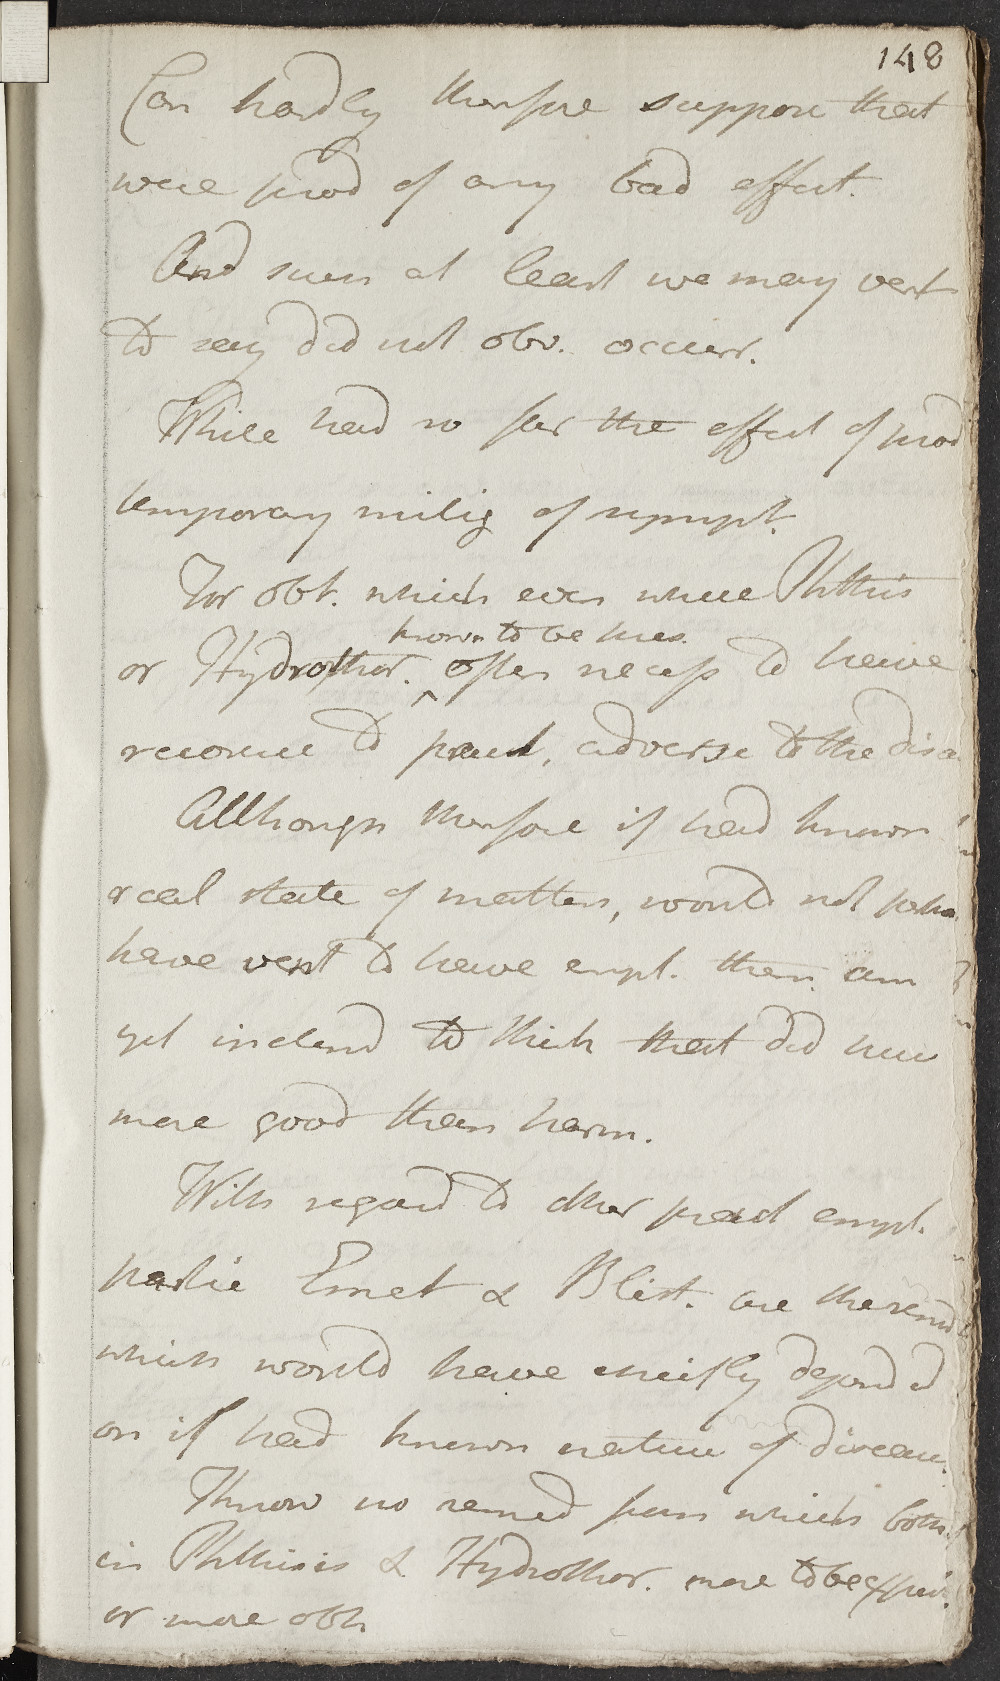 148
Can hardly therefore suppose that
were prod of any bad effect.
And such at least we may vent
to say did not obv. occurr.
While had so far the effect of prod
temporary mitig of sympt.
For obt. which even where Phthis
known to be pres.
or Hydrothor. often necess to have
recourse to pract, adverse to the disea
Although therefore if had known
real state of matters, would not perha
have vent to have empl. them am
yet inclend to think that did here
more good than harm.
With regard to other pract empl.
partic Emet & Blist. are the remd
which would have chiefly depend d
on if had known nature of disease.
Know no remed from which both
in Phthisis & Hydrothor. more to be
or more obt